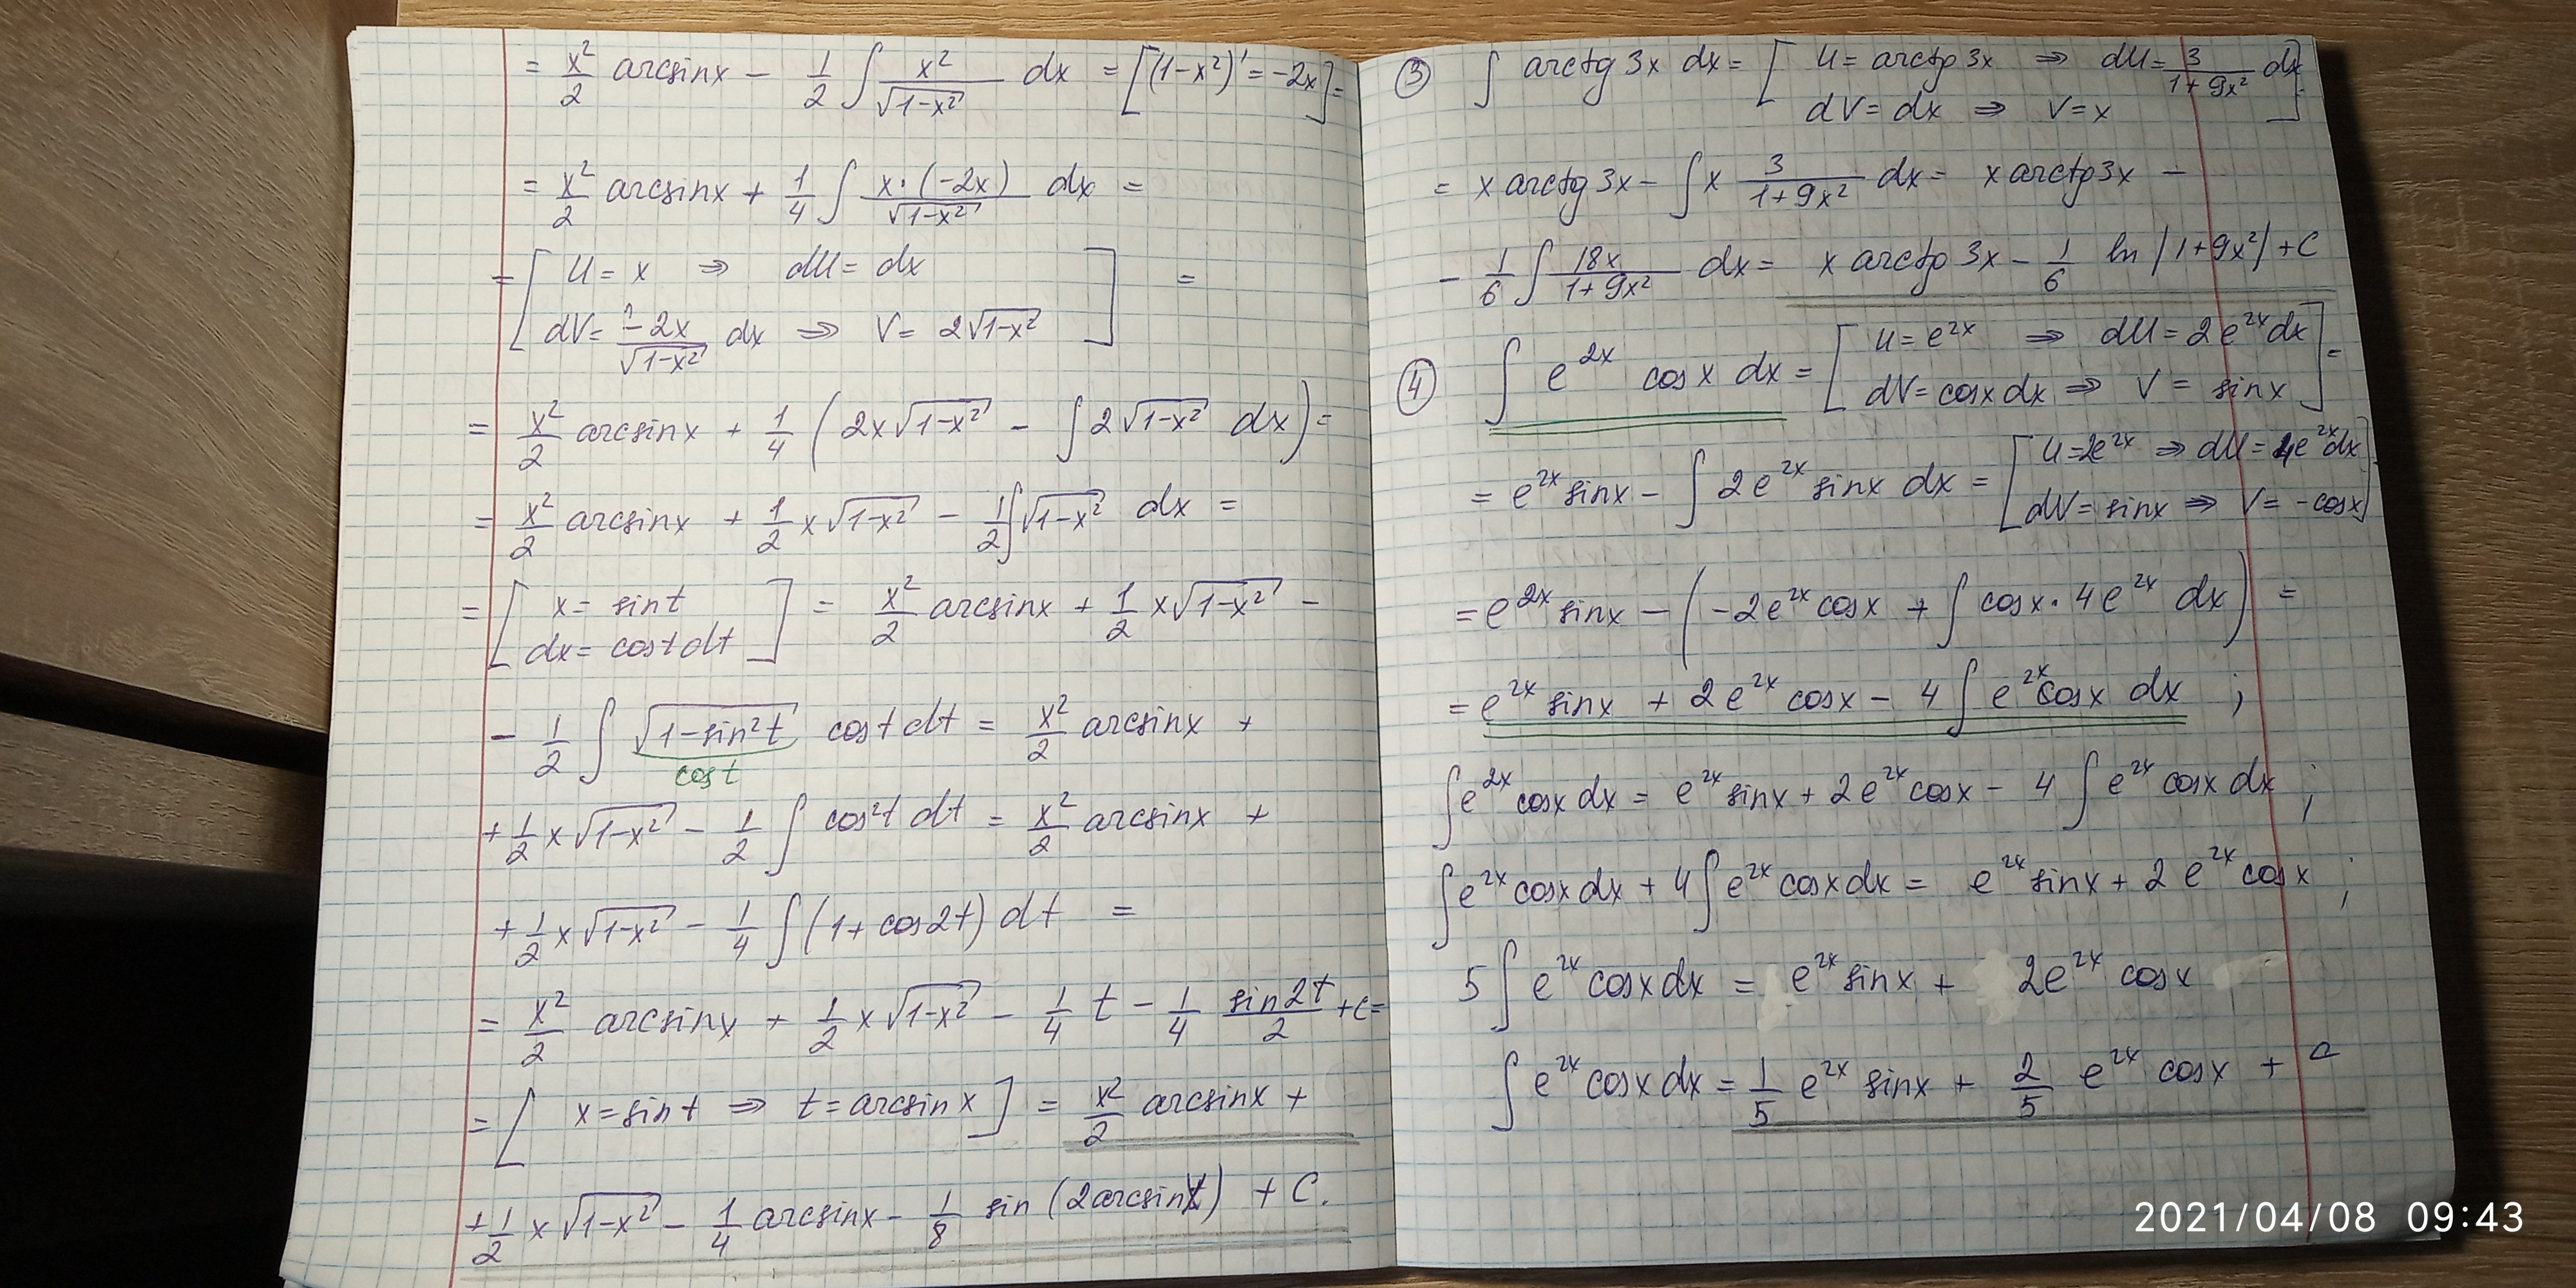 = x²/2 arcsinx - 1/2 ∫ x²/√(1-x²) dx = [(1-x²)' = -2x] =
= x²/2 arcsinx + 1/4 ∫ x·(-2x)/√(1-x²) dx =
= [ u = x ⇒ du = dx ] =
[ dv = -2x/√(1-x²) dx ⇒ v = 2√(1-x²) ]
= x²/2 arcsinx + 1/4 (2x√(1-x²) - ∫ 2√(1-x²) dx) =
= x²/2 arcsinx + 1/2 x√(1-x²) - 1/2 ∫√(1-x²) dx =
= [ x = sint ] = x²/2 arcsinx + 1/2 x√(1-x²) -
[ dx = costdt ]
- 1/2 ∫ √(1-sin²t) cost dt = x²/2 arcsinx +
cost
+ 1/2 x√(1-x²) - 1/2 ∫ cos²t dt = x²/2 arcsinx +
+ 1/2 x√(1-x²) - 1/4 ∫(1+cos2t) dt =
= x²/2 arcsinx + 1/2 x√(1-x²) - 1/4 t - 1/4 sin2t/2 + c =
= [ x = sint ⇒ t = arcsinx ] = x²/2 arcsinx +
+ 1/2 x√(1-x²) - 1/4 arcsinx - 1/8 sin(2arcsinx) + C.
③ ∫ arctg3x dx = [ u = arctg3x ⇒ du = 3/(1+9x²) dx ]
[ dv = dx ⇒ v = x ]
= x arctg3x - ∫ x 3/(1+9x²) dx = x arctg3x -
- 1/6 ∫ 18x/(1+9x²) dx = x arctg3x - 1/6 ln|1+9x²| + C
④ ∫ e^2x cosx dx = [ u = e^2x ⇒ du = 2e^2x dx ] =
[ dv = cosxdx ⇒ v = sinx ]
= e^2x sinx - ∫ 2e^2x sinx dx = [ u = 2e^2x ⇒ du = 4e^2x dx ]
[ dv = sinx ⇒ v = -cosx ]
= e^2x sinx - (-2e^2x cosx + ∫ cosx·4e^2x dx) =
= e^2x sinx + 2e^2x cosx - 4∫ e^2x cosx dx ;
∫e^2x cosxdx = e^2x sinx + 2e^2x cosx - 4 ∫ e^2x cosx dx ;
∫e^2x cosxdx + 4∫e^2x cosxdx = e^2x sinx + 2e^2x cosx ;
5∫ e^2x cosxdx = e^2x sinx + 2e^2x cosx
∫ e^2x cosxdx = 1/5 e^2x sinx + 2/5 e^2x cosx + c
2021/04/08 09:43